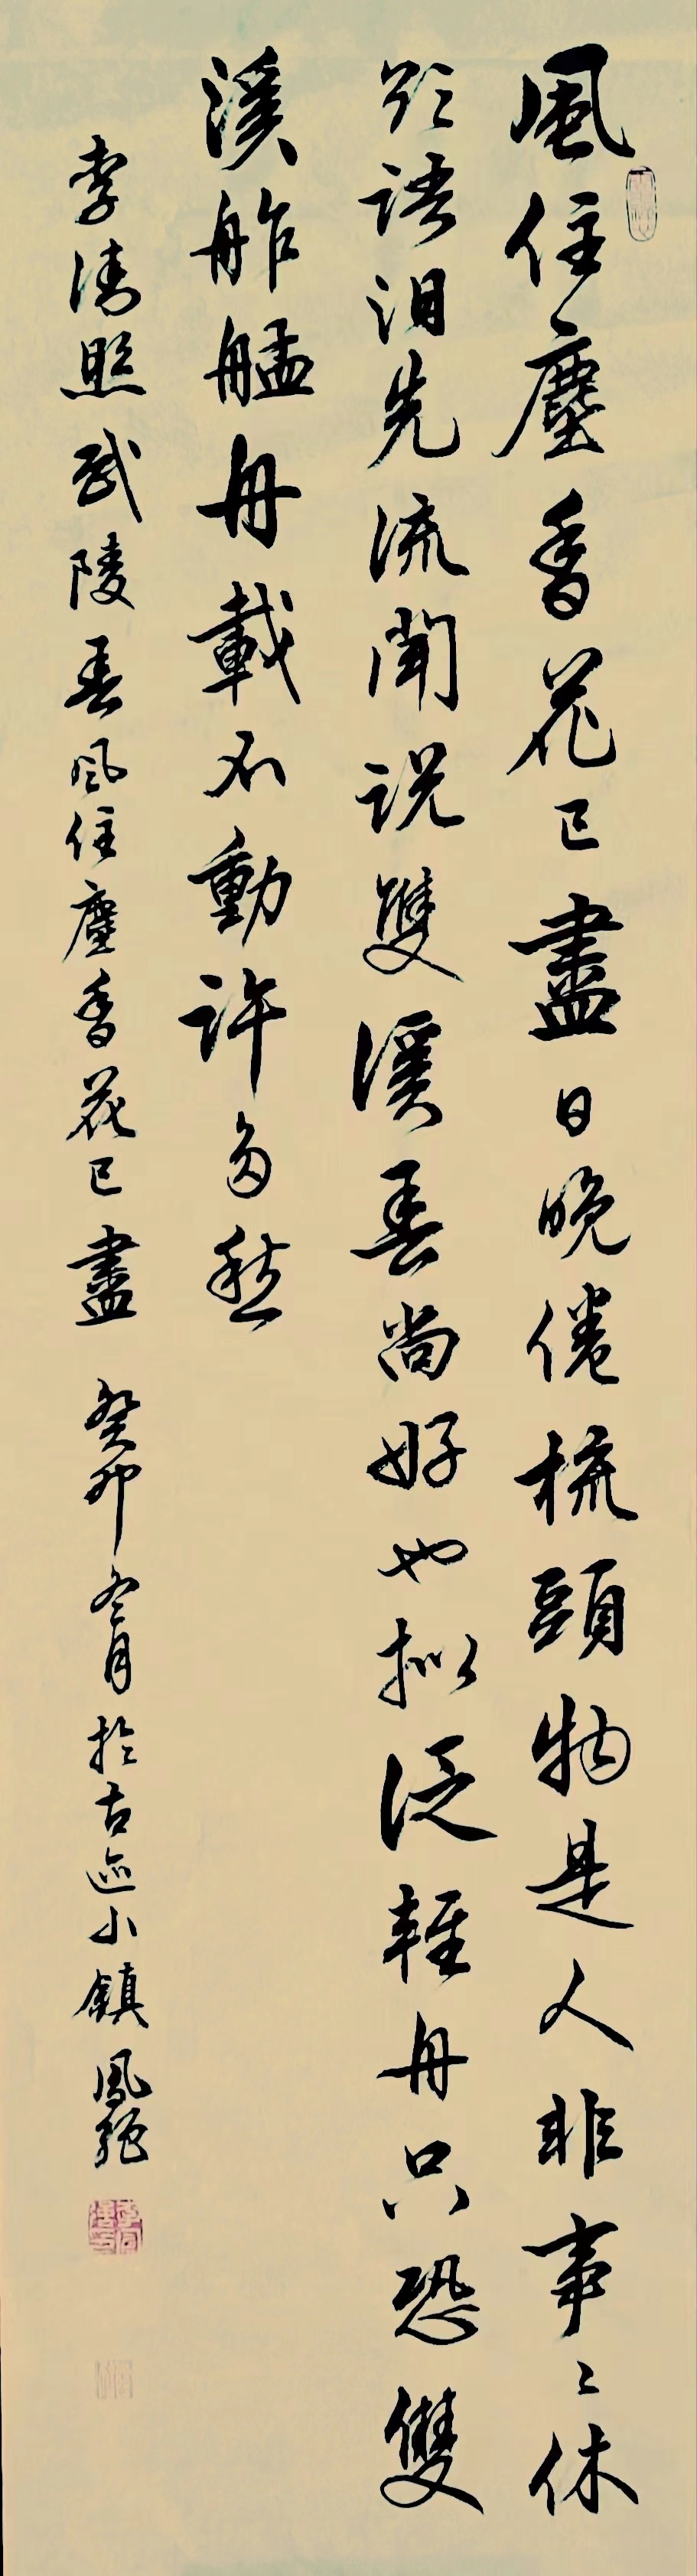 風住塵香花已盡日晚倦梳頭物是人非事〻休
欲語淚先流聞說雙溪春尚好也擬泛輕舟只恐雙
溪舴艋舟載不動許多愁
李清照武陵春風住塵香花已盡 癸卯冬月於古迹小鎮